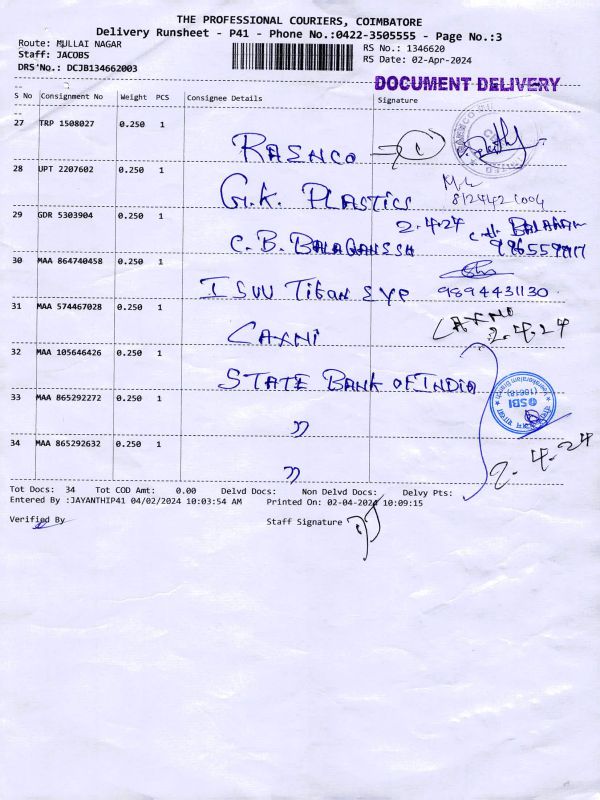 THE PROFESSIONAL COURIERS, COIMBATORE
Delivery Runsheet - P41 - Phone No.:0422-3505555 - Page No.:3
Route: MULLAI NAGAR
RS No.: 1346620
Staff: JACOBS
RS Date: 02-Apr-2024
DRS No.: DCJB134662003
DOCUMENT DELIVERY
S No Consignment No Weight PCS Consignee Details Signature
27 TRP 1508027 0.250 1
RAENCO 1
28 UPT 2207602 0.250 1
G.K. PLASTICS
8124421004
29 GDR 5303904 0.250 1
2.4.24
C.B.
30 MAA 864740458 0.250 1
9894431130
31 MAA 574467028 0.250 1
CAXNI
2.4.24
32 MAA 105646426 0.250 1
STATE BANK OF INDIA
33 MAA 865292272 0.250 1
"
SBI
34 MAA 865292632 0.250 1
"
2.4.24
Tot Docs: 34 Tot COD Amt: 0.00 Delvd Docs: Non Delvd Docs: Delvy Pts:
Entered By :JAYANTHIP41 04/02/2024 10:03:54 AM Printed On: 02-04-2024 10:09:15
Verified By
Staff Signature